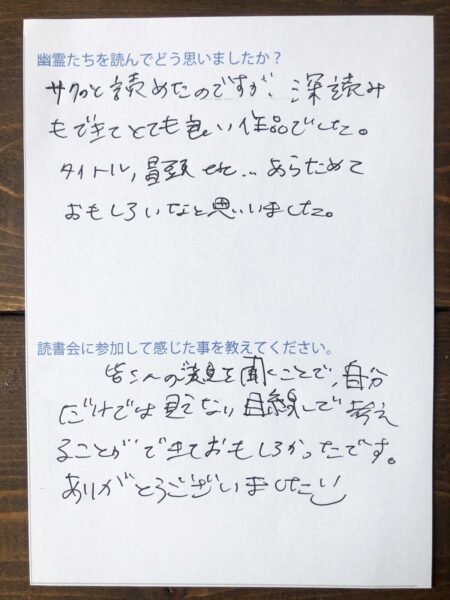 幽霊たちを読んでどう思いましたか？
サクっと読めたのですが、深読み
もできてとても良い作品でした。
タイトル,冒頭 etc... あらためて
おもしろいなと思いました。
読書会に参加して感じた事を教えてください。
皆さんの意見を聞くことで、自分
だけでは見えない目線で考え
ることができておもしろかったです。
ありがとうございました